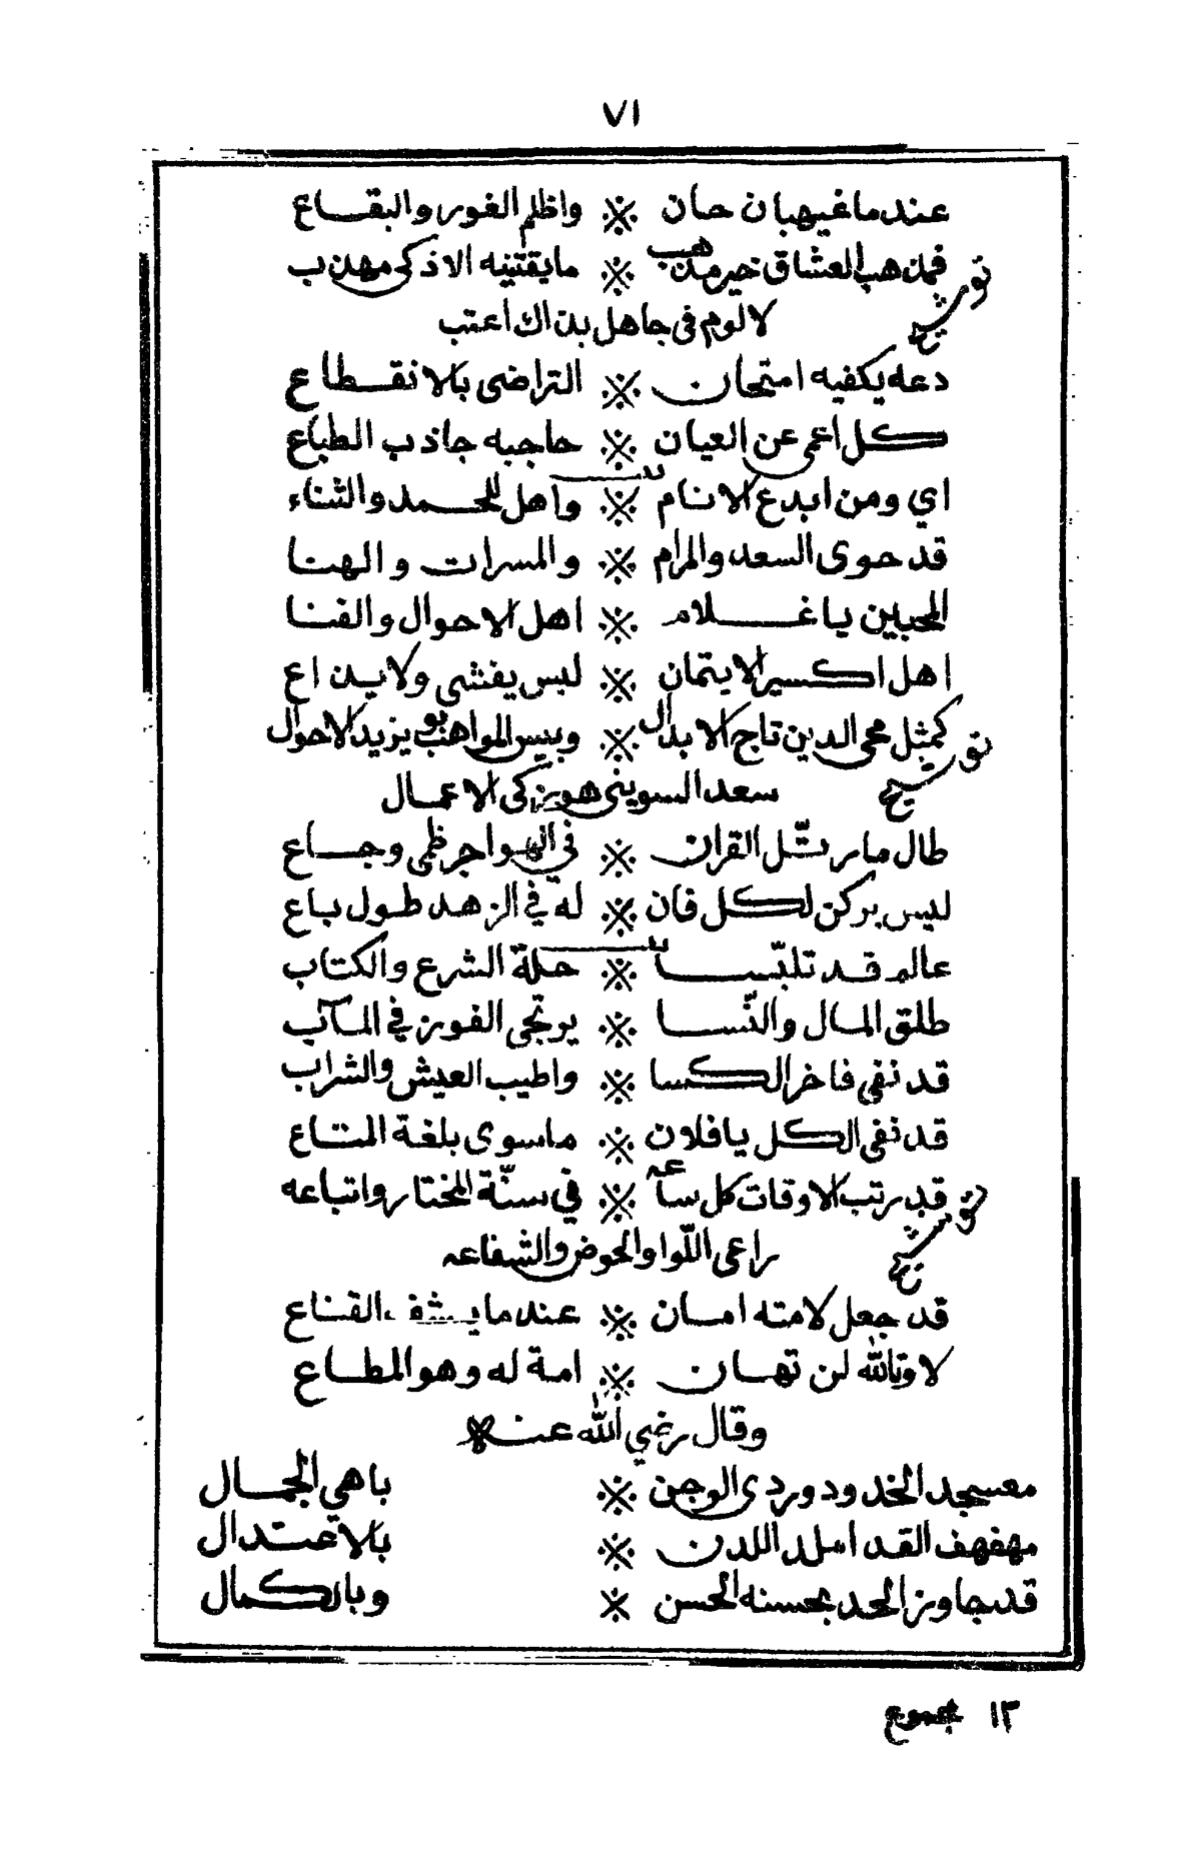 ٧١
عند ما غيهبان حان ※ واظلم الغور والبقاع
فمذهب العشاق خير مذهب ※ ما يقتنيه الا ذكى مهذب
توشيح
لا لوم فى جاهل بذاك اعتب
دعه يكفيه امتحان ※ التراضى بالانقطاع
كل اعمى عن العيان ※ حاجبه جاذب الطباع
اي ومن ابدع الانام ※ واهل للحمد والثناء
قد حوى السعد والمرام ※ والمسرات والهنا
المحبين يا غلام ※ اهل الاحوال والفنا
اهل اكسير الايتمان ※ ليس يفشى ولا يذاع
كمثل محى الدين تاج الابدال ※ وبيس المواهب بو يزيد الاحوال
توشيح
سعد السوينى هو زكى الاعمال
طال ما رتّل القران ※ فى الهواجر ظمى وجاع
ليس يركن لكل فان ※ له في الزهد طول باع
عالم قد تلبّسا ※ حلة الشرع والكتاب
طلق المال والنّسا ※ يرتجى الفوز في المآب
قد نفى فاخر الكسا ※ واطيب العيش والشراب
قد نفى الكل يا فلان ※ ما سوى بلغة المتاع
قد رتب الاوقات كل ساعه ※ في سنّة المختار واتباعه
توشيح
راعى اللّوا والحوض والشفاعه
قد جعل لامته امان ※ عند ما يشف القناع
لا وتالله لن تهان ※ امة له وهو المطاع
وقال رضي الله عنه
معسجد الخدود وردى الوجن ※ باهي الجمال
مهفهف القد املد اللدن ※ بالاعتدال
قد جاوز الحد بحسنه الحسن ※ وبالكمال
١٣ مجموع